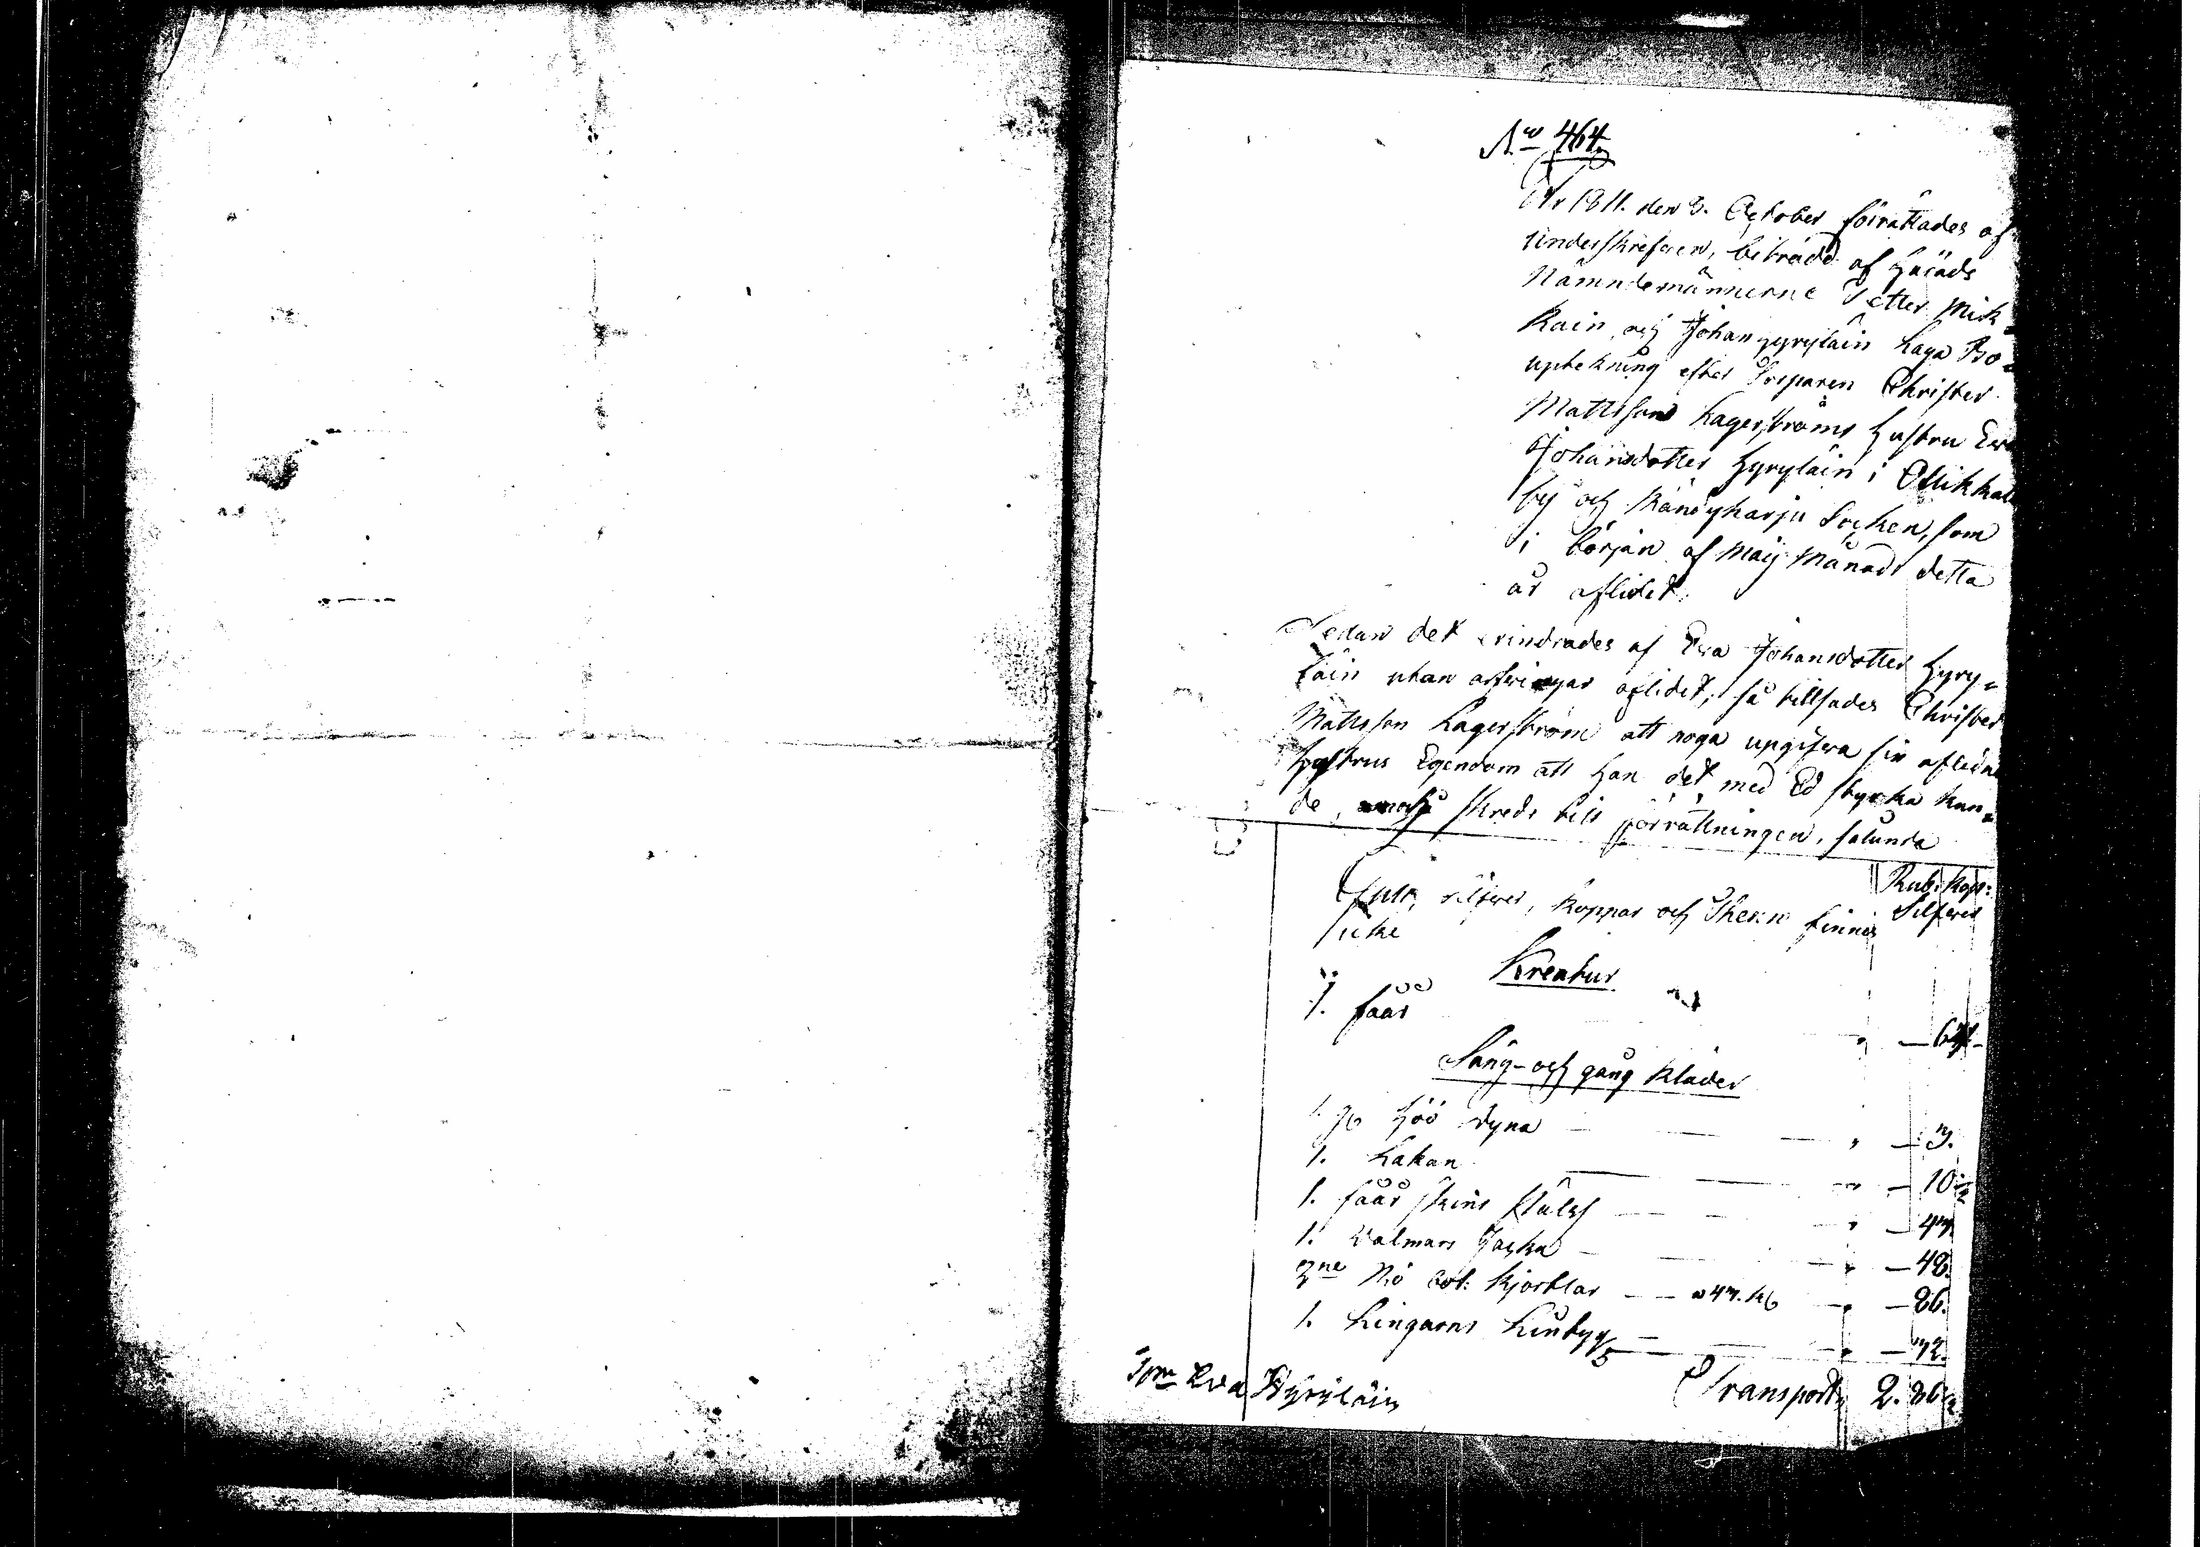 No 464.
År 1811. den 3. October förrättades af
Underskrefven, biträdd af Häräds
Nämndemännerne Petter Mik=
kain, och Johan Hyryläin Laga Bo=
uptekning efter Torparen Christer
Mattsson Lagerströms Hustru Eva
Johansdotter Hyryläin i Ollikkala
by och Räntyharju Socken, som
i början af Maij Månad detta
år aflidet.
Sedan det erindrades af Eva Johansdotter Hyry=
läin utan arfvingar aflidet, så tillsades Christer
Mattsson Lagerström att noga upgifva sin aflidne
Hustrus Egendom att han det med Ed styrka kun=
de, skreds till förrättningen, sålunda
Rub: Kop:
Silfver
Gull, silfver, Koppar och Thenn finnes
icke
Kreatur
1. faår — 64
Säng- och gång kläder
1. Höö dyna — 3.
1. Lakan — 10 1/2
1. faår skins — 47.
1. Valmars Jacka — 48.
2ne Kjortlar — a 47. — 86.
1. Lingarns — 72.
Transport 2. 86
Eva Hyryläin